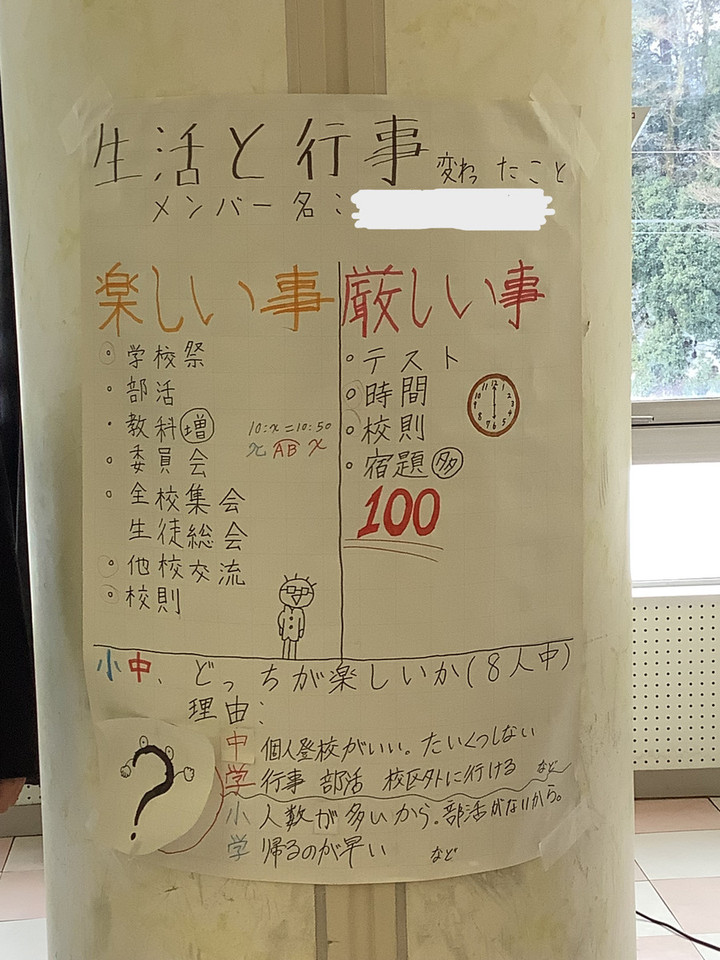 生活と行事 変わったこと
メンバー名:
楽しい事
・学校祭
・部活
・教科増
・委員会
・全校集会
生徒総会
・他校交流
・校則
10:x=10:50
x AB x
厳しい事
・テスト
・時間
・校則
・宿題多
100
12 1 2 3 4 5 6 7 8 9 10 11
小中、どっちが楽しいか(8人中)
理由:
中学 個人登校がいい。たいくつしない
行事 部活 校区外に行ける など
小学 人数が多いから。部活がないから。
帰るのが早い など
?